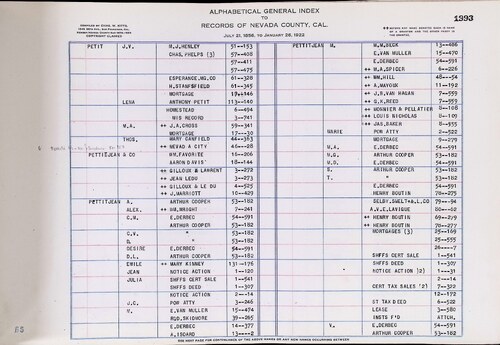 ALPHABETICAL GENERAL INDEX
TO
RECORDS OF NEVADA COUNTY, CAL.
JULY 21, 1856, TO JANUARY 28, 1922
1993
COPYRIGHT CLAIMED
PETIT J.V. M.J.HENLEY 51--153
CHAS.PHELPS (3) 57--239
57--411
57--475
ESPERANCE,MG.CO 61--328
H.STANSFIELD 61--345
MORTGAGE 19--146
LENA ANTHONY PETIT 113--140
HOMESTEAD 6--494
WIS RECORD 3--741
W.A. ++ J.A.CROSS 59--341
MORTGAGE 17--30
THOS. MARY CANFIELD 44--383
++ NEVADA CITY 46--28
PETTITJEAN & CO WM.FAVORITE 16--266
AARON DAVIS 18--146
++ GILLOUX & LAURENT 3--272
++ JEAN LEDU 3--273
++ GILLOUX & LE DU 4--525
++ J.MARRIOTT 10--429
PETITJEAN A. ARTHUR COOPER 53--182
ALEX. ++ WM.WRIGHT 7--241
C.M. E.DERBEC 54--591
ARTHUR COOPER 53--182
C.V. " 53--182
D. " 53--182
DESIRE E.DERBEC 54--591
D.L. ARTHUR COOPER 53--182
EMILE ++ MARY KINNEY 131--176
JEAN NOTICE ACTION 1--120
JULIA SHFFS CERT SALE 1--541
SHFFS DEED 1--307
NOTICE ACTION 2--14
J.E. POR ATTY 3--246
M. E.VAN MULLER 15--474
R&D.SKIDMORE 39--265
E.DERBEC 14--377
A.ISOARD 13---2
PETTITJEAN M. M.M.BECK 13--486
E.VAN MULLER 15--470
E.DERBEC 54--591
++ M.A.SPIDER 6--226
++ WM.HILL 48--54
++ A.MAYOUX 11--192
++ J.R.VAN HAGAN 7--559
++ S.K.REED 7--559
++ MONNIER & PELLETIER 8--108
++ LOUIS NICHOLAS 8--109
++ JAS.BAKER 8--555
MARIE POR ATTY 2--522
" 5--279
M.A. E.DERBEC 54--591
M.G. ARTHUR COOPER 53--182
M.D. E.DERBEC 54--591
S. ARTHUR COOPER 53--182
T. " 53--182
E.DERBEC 54--591
HENRY BOUTIN 70--275
SELBY.SMELT&L.CO 79--94
A.V.E.LAVIGE 80--62
++ HENRY BOUTIN 69--279
++ HENRY BOUTIN 70--277
MORTGAGES (3) 25--169
25--555
26----7
SHFFS CERT SALE 1--541
SHFFS DEED 1--307
NOTICE ACTION (2) 1--31
2--14
CERT TAX SALES (2) 7--322
12--172
ST TAX DEED 6--522
LEASE 3--580
INSTS F'D ATTCH.
V. E.DERBEC 54--591
ARTHUR COOPER 53--182
SEE NEXT PAGE FOR CONTINUANCE OF THE ABOVE NAMES OR ANY NEW NAMES OCCURRING BETWEEN